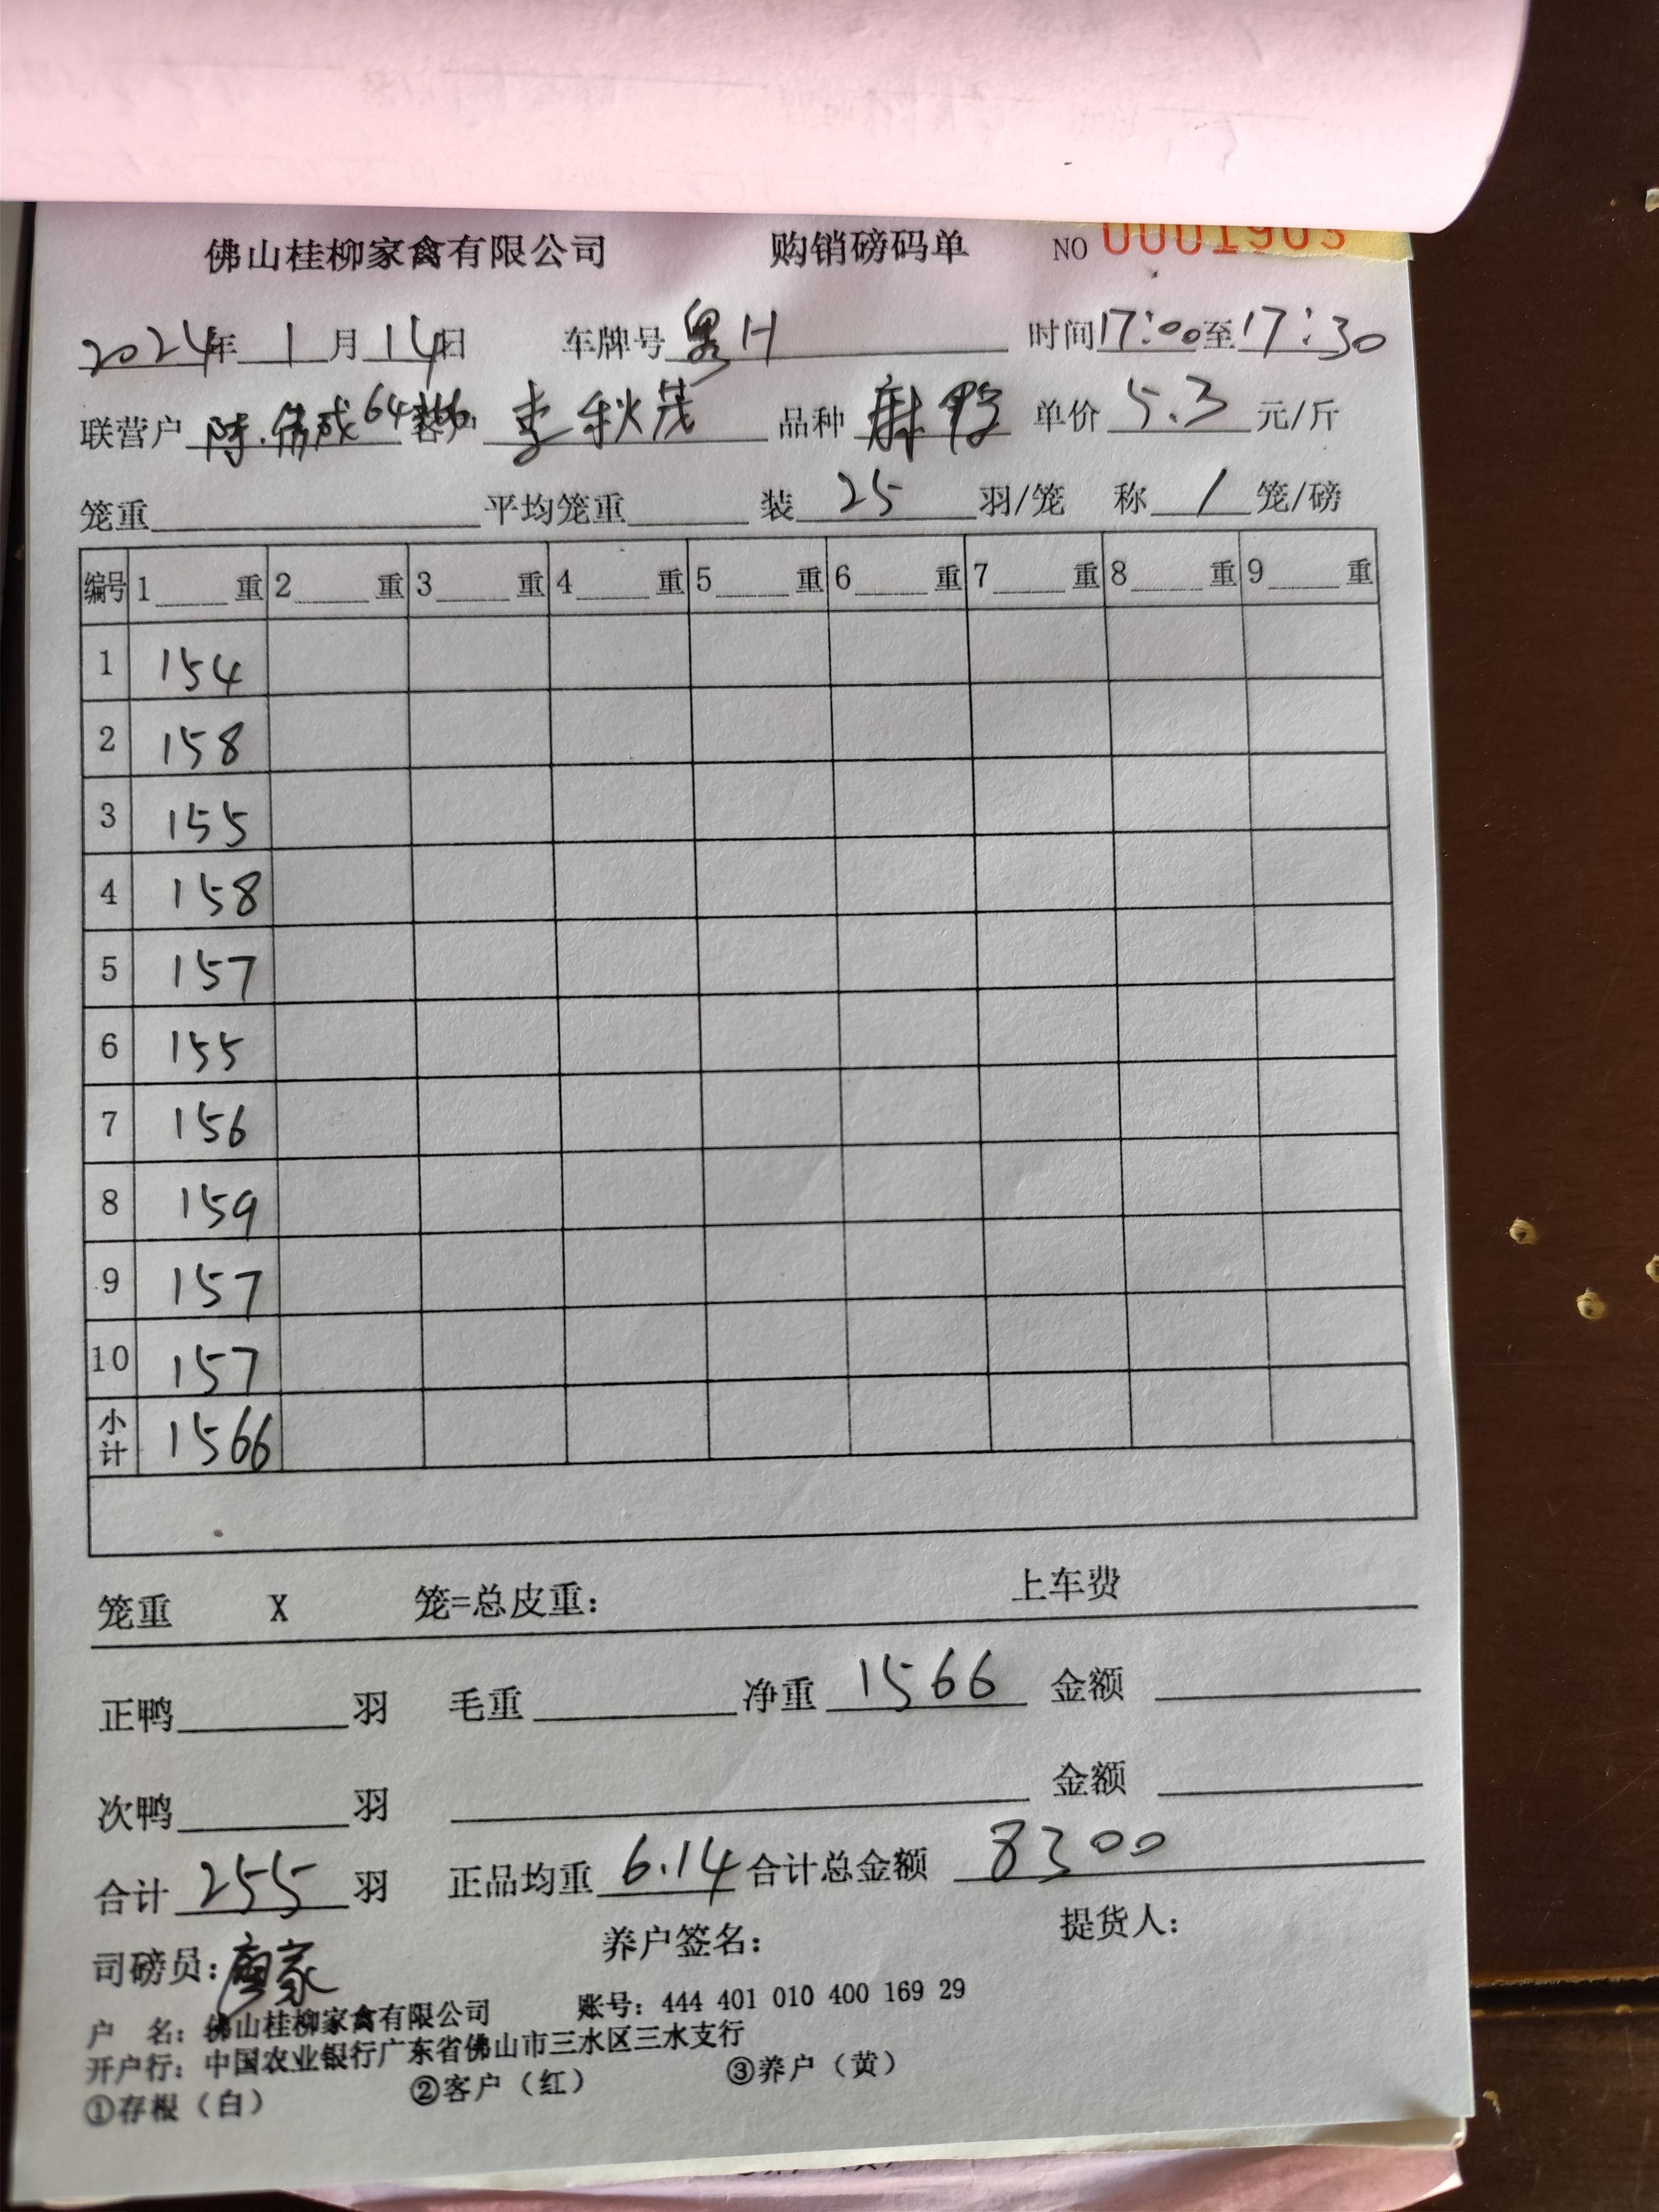 佛山桂柳家禽有限公司 购销磅码单 NO 0001903
2024年 1 月 14日 车牌号 粤H 时间 17:00 至 17:30
联营户 陈 成 客户 李秋茂 品种 麻鸭 单价 5.3 元/斤
笼重 平均笼重 装 25 羽/笼 称 1 笼/磅
编号 1 重 2 重 3 重 4 重 5 重 6 重 7 重 8 重 9 重
1 154
2 158
3 155
4 158
5 157
6 155
7 156
8 159
9 157
10 157
小计 1566
笼重 X 笼=总皮重: 上车费
正鸭 羽 毛重 净重 1566 金额
次鸭 羽 金额
合计 255 羽 正品均重 6.14 合计总金额 8300
司磅员: 廖家 养户签名: 提货人:
户 名: 佛山桂柳家禽有限公司 账号: 444 401 010 400 169 29
开户行: 中国农业银行广东省佛山市三水区三水支行
①存根(白) ②客户(红) ③养户(黄)